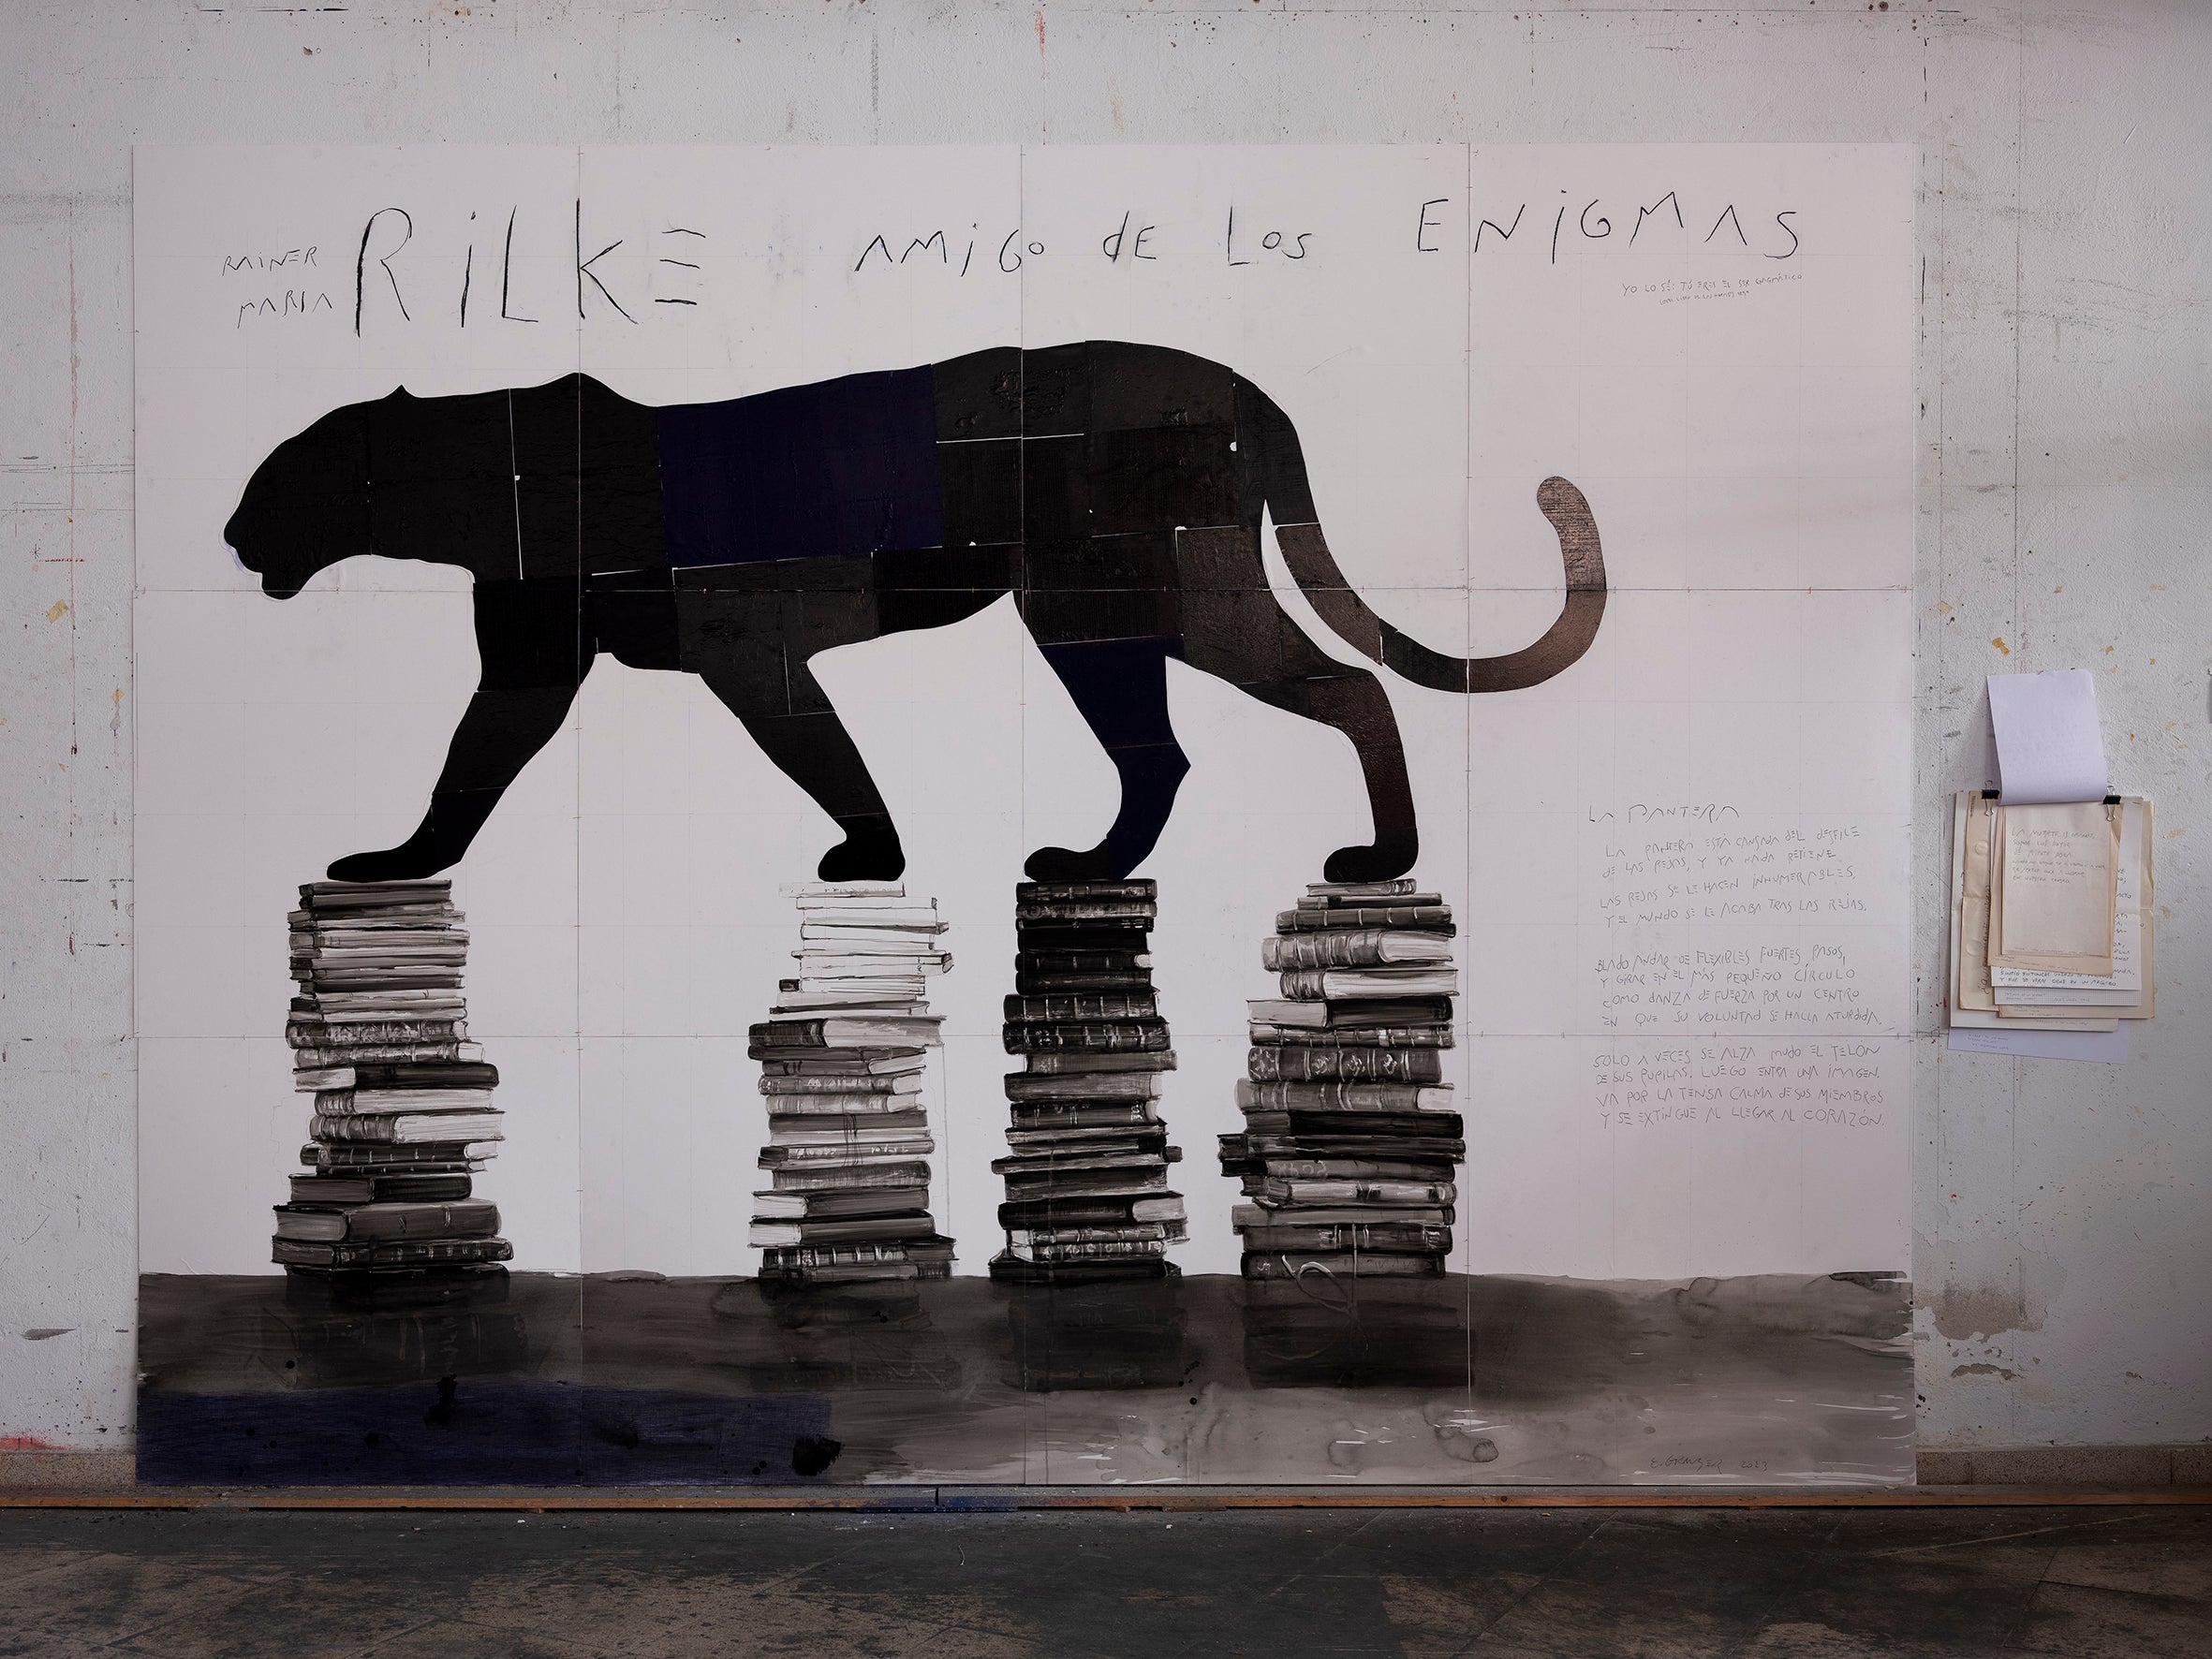 RAINER
MARIA
RILKE AMIGO DE LOS ENIGMAS
YO LO SÉ: TÚ ERES EL SER ENIGMÁTICO
LA PANTERA
LA PANTERA ESTÁ CANSADA DEL DESFILE
DE LAS REJAS, Y YA NADA RETIENE.
LAS REJAS SE LE HACEN INNUMERABLES,
Y EL MUNDO SE LE ACABA TRAS LAS REJAS.
BLADO ANDAR DE FLEXIBLES FUERTES PASOS,
Y GIRAR EN EL MÁS PEQUEÑO CÍRCULO
COMO DANZA DE FUERZA POR UN CENTRO
EN QUE SU VOLUNTAD SE HALLA ATURDIDA.
SOLO A VECES SE ALZA MUDO EL TELÓN
DE SUS PUPILAS. LUEGO ENTRA UNA IMAGEN.
VA POR LA TENSA CALMA DE SUS MIEMBROS
Y SE EXTINGUE AL LLEGAR AL CORAZÓN.
2023
LA MUERTE ES GRANDE